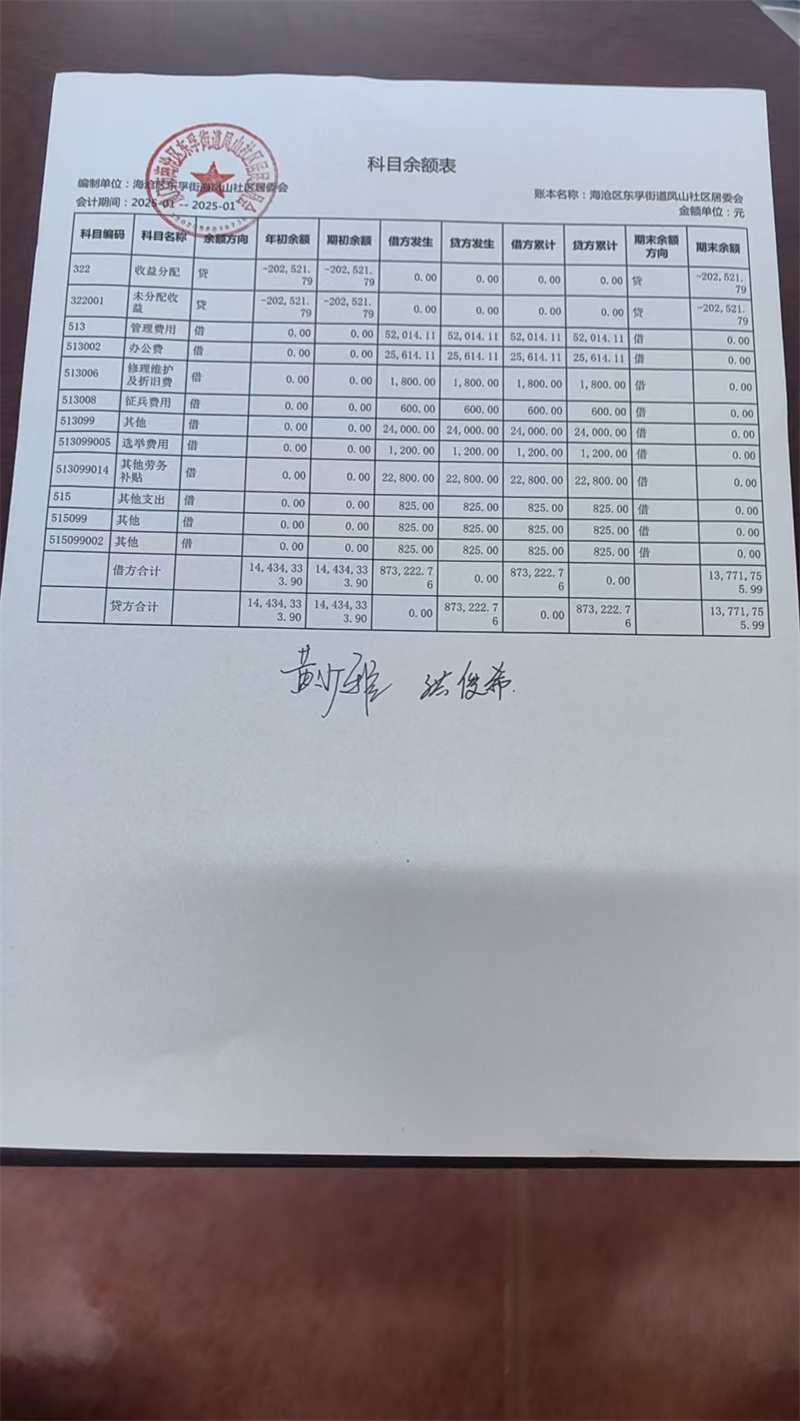 科目余额表
编制单位：海沧区东孚街道凤山社区居委会
账本名称：海沧区东孚街道凤山社区居委会
会计期间：2025-01 -- 2025-01
金额单位：元
科目编码 科目名称 余额方向 年初余额 期初余额 借方发生 贷方发生 借方累计 贷方累计 期末余额方向 期末余额
322 收益分配 贷 -202,521.79 -202,521.79 0.00 0.00 0.00 0.00 贷 -202,521.79
322001 未分配收益 贷 -202,521.79 -202,521.79 0.00 0.00 0.00 0.00 贷 -202,521.79
513 管理费用 借 0.00 0.00 52,014.11 52,014.11 52,014.11 52,014.11 借 0.00
513002 办公费 借 0.00 0.00 25,614.11 25,614.11 25,614.11 25,614.11 借 0.00
513006 修理维护及折旧费 借 0.00 0.00 1,800.00 1,800.00 1,800.00 1,800.00 借 0.00
513008 征兵费用 借 0.00 0.00 600.00 600.00 600.00 600.00 借 0.00
513099 其他 借 0.00 0.00 24,000.00 24,000.00 24,000.00 24,000.00 借 0.00
513099005 选举费用 借 0.00 0.00 1,200.00 1,200.00 1,200.00 1,200.00 借 0.00
513099014 其他劳务补贴 借 0.00 0.00 22,800.00 22,800.00 22,800.00 22,800.00 借 0.00
515 其他支出 借 0.00 0.00 825.00 825.00 825.00 825.00 借 0.00
515099 其他 借 0.00 0.00 825.00 825.00 825.00 825.00 借 0.00
515099002 其他 借 0.00 0.00 825.00 825.00 825.00 825.00 借 0.00
借方合计 14,434,333.90 14,434,333.90 873,222.76 0.00 873,222.76 0.00 13,771,755.99
贷方合计 14,434,333.90 14,434,333.90 0.00 873,222.76 0.00 873,222.76 13,771,755.99
洪俊希